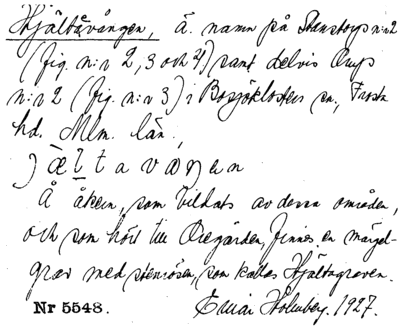 Hjältavången, ä. namn på Stanstorp n:r 2
(fig. n:r 2, 3 och 4) samt delvis Orups
n:r 2 (fig. n:r 3) i Bosjöklosters sn, Frosta
hd. Mlm. län.
Å åkern, som bildats av dessa områden,
och som hört till Öregården, finnes en märgel-
grav med stenrösen, som kallas Hjältagraven.
Nr 5548. Einar Holmberg. 1927.